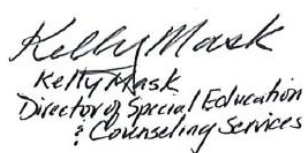 Kelly Mask
Kelly Mask
Director of Special Education
& Counseling Services